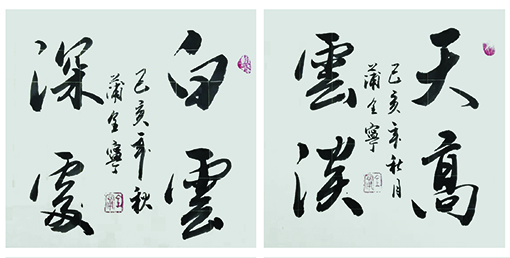 白雲
深處
己亥年秋
蒲全寧
天高
雲淡
己亥年秋月
蒲全寧